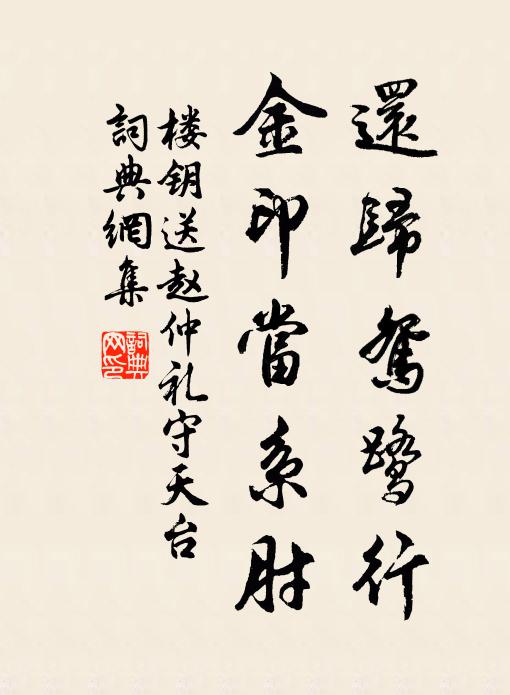 還歸鴛鹭行
金印當系肘
楼钥送赵仲礼守天台
詞典網集
詞典网印